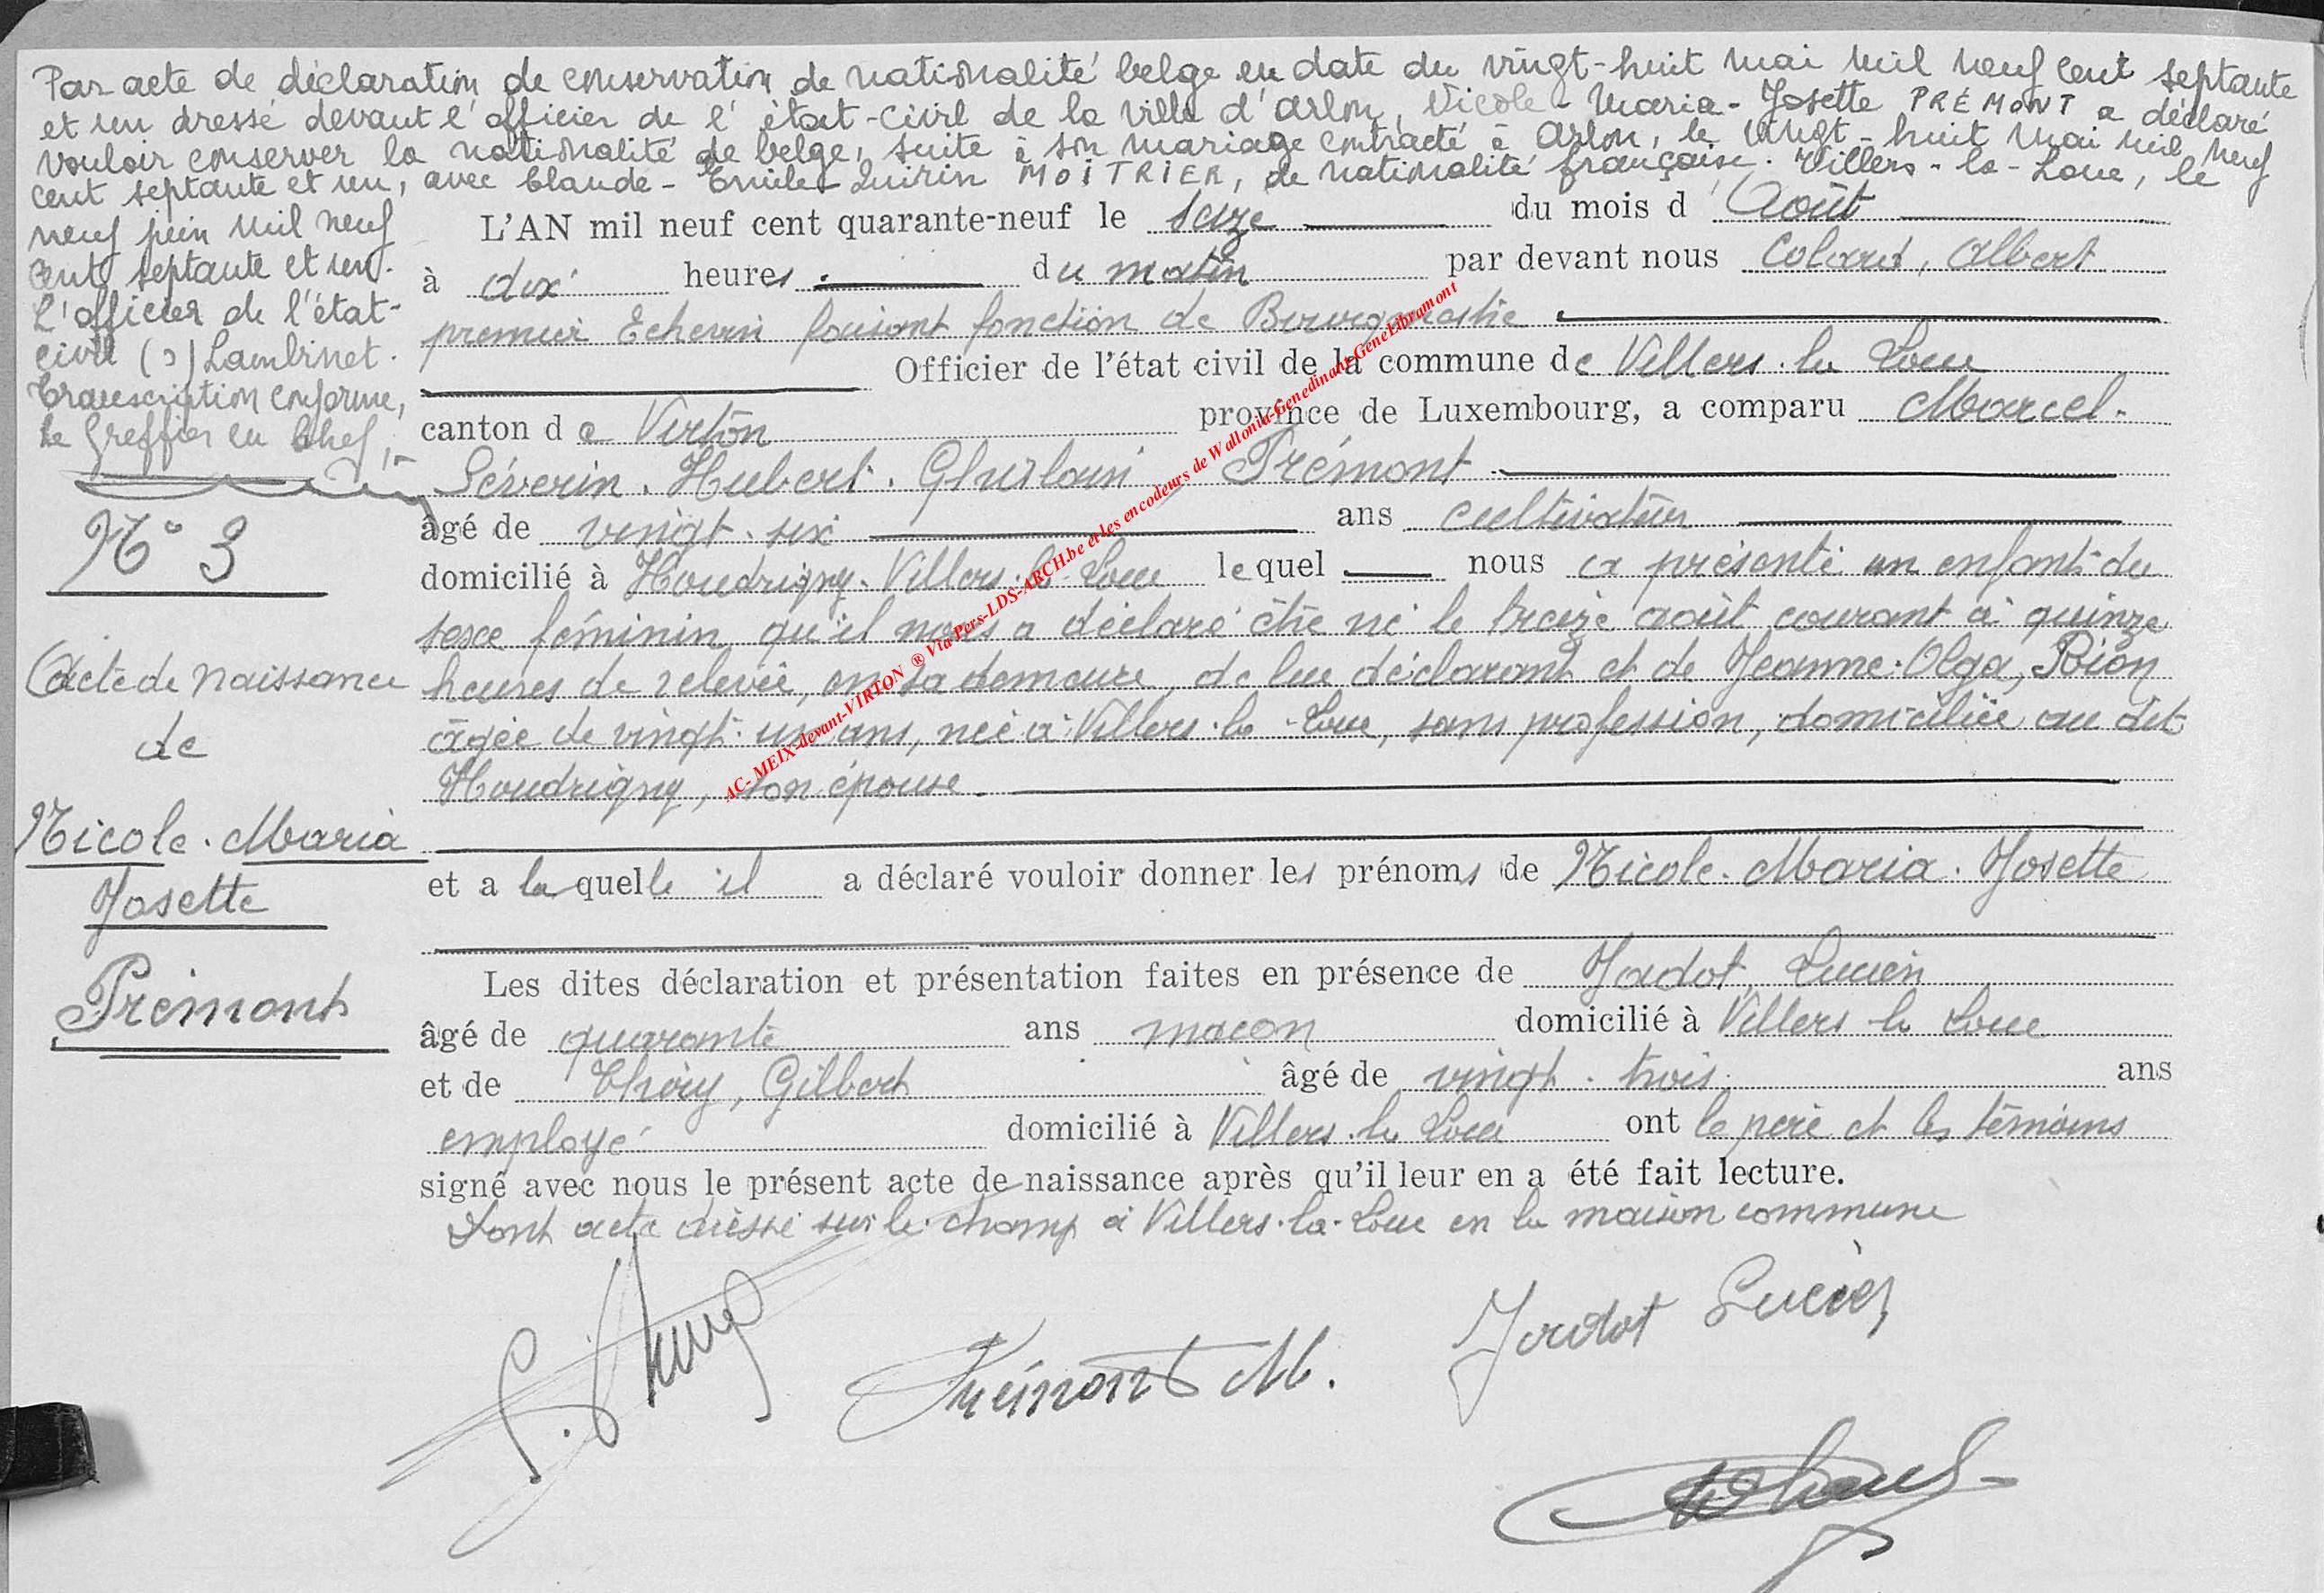 Par acte de déclaration de conservation de nationalité belge en date du vingt-huit mai mil neuf cent septante
et un dressé devant l'officier de l'état-civil de la ville d'Arlon, Nicole-Maria-Josette PRÉMONT a déclaré
vouloir conserver la nationalité de belge, suite à son mariage contracté à Arlon, le vingt-huit mai mil neuf
cent septante et un, avec Claude-Emile-Quirin MOITRIER, de nationalité française. Villers-la-Loue, le
neuf juin mil neuf
cent septante et un.
L'officier de l'état-
civil (s) Lambinet.
Transcription conforme,
Le Greffier en Chef,
N° 3
Acte de naissance
de
Nicole. Maria
Josette
Prémont
L'AN mil neuf cent quarante-neuf le seize du mois d'Août
à dix heures du matin par devant nous Colard, Albert
premier Echevin faisant fonction de Bourgmestre
Officier de l'état civil de la commune de Villers-la-Loue
canton de Virton province de Luxembourg, a comparu Marcel-
Séverin. Hubert. Ghislain Prémont
âgé de vingt-six ans cultivateur
domicilié à Houdrigny-Villers-la-Loue lequel nous a présenté un enfant du
sexe féminin qu'il nous a déclaré être né le treize août courant à quinze
heures de relevée, en sa demeure, de lui déclarant et de Jeanne-Olga, Pion
âgée de vingt-un ans, née à Villers-la-Loue, sans profession, domiciliée au dit
Houdrigny, son épouse.
et a laquelle il a déclaré vouloir donner les prénoms de Nicole. Maria. Josette
Les dites déclaration et présentation faites en présence de Jadot, Lucien
âgé de quarante ans maçon domicilié à Villers-la-Loue
et de Théry, Gilbert âgé de vingt-trois ans
employé domicilié à Villers-la-Loue ont le père et les témoins
signé avec nous le présent acte de naissance après qu'il leur en a été fait lecture.
Dont acte dressé sur le champ à Villers-la-Loue en la maison commune
Prémont M.
Jadot Lucien
AC-MEIX-devant-VIRTON ® Via Pers-LDS-ARCH.be et les encodeurs de Wallonia-Genedinant-GeneLibramont